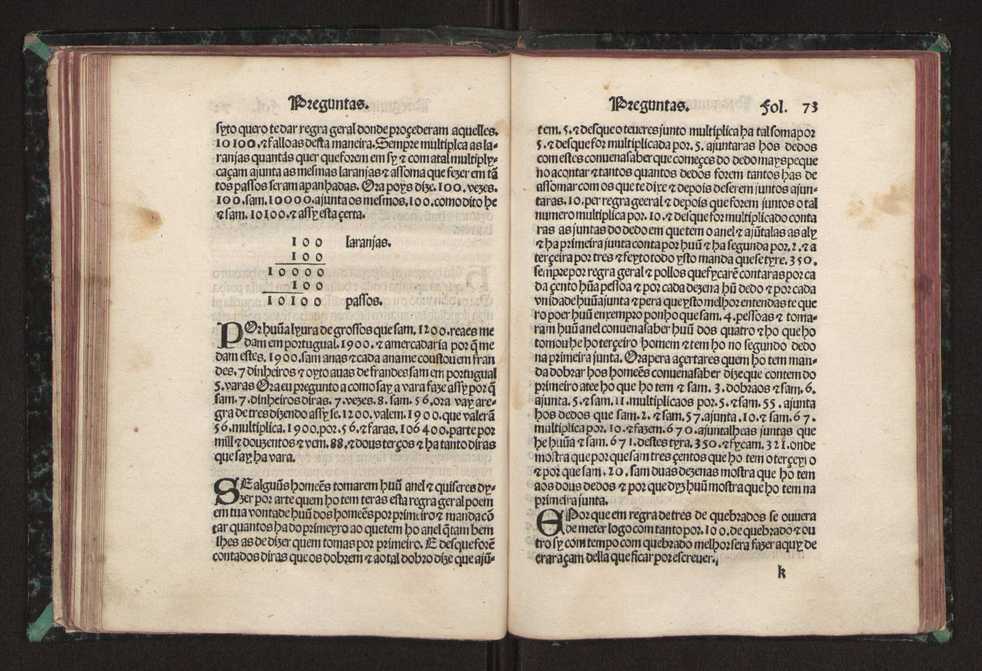 Preguntas.
syto quero te dar regra geral donde proçederam aquelles.
10100. ⁊ fallo as desta maneira. Sempre multiplica as la-
ranjas quantas quer que forem em sy ⁊ com a tal multiply-
caçam ajunta as mesmas laranjas ⁊ a ssoma que fezer em tã
tos passos seram apanhadas. Ora poys dize. 100. vezes.
100. sam. 10000. ajunta os mesmos, 100. como dito he
⁊ sam. 10100. ⁊ assy esta çerta.
100 laranjas.
100
10000
100
10100 passos.
POr huũa lyura de grossos que sam. 1200. reaes me
dam em portugual. 1900. ⁊ a mercadaria por q̃ me
dam estes. 1900. sam anas ⁊ cada ana me coustou em fran
des. 7 dinheiros ⁊ oyto auas de frandes sam em portugual
5. varas Ora eu pregunto a como say a vara faze assy por q̃
sam. 7. dinheiros diras. 7. vezes. 8. sam. 56. ora vay a re-
gra de tres dizendo assy se. 1200. valem. 1900. que valerã
56. multiplica. 1900. por. 56. ⁊ faras, 106400. parte por
mill ⁊ douzentos ⁊ vem. 88. ⁊ dous terços ⁊ ha tanto diras
que say ha vara.
SE alguũs homeẽs tomarem huũ anel ⁊ quiseres dy-
zer por arte quem ho tem teras esta regra geral poem
em tua vontade huũ dos homeẽs por primeiro ⁊ manda cõ
tar quantos ha do primeyro ao que tem ho anel q̃ tam bem
lhes as de dizer quem tomas por primeiro. E des que forẽ
contados diras que os dobrem ⁊ ao tal dobro dize que ajũ-
Preguntas. Fol. 73
tem. 5. ⁊ des que o teueres junto multiplica ha tal soma por
5. ⁊ des que for multiplicada por. 5. ajuntaras hos dedos
com estes conuen a saber que começes do dedo mays peque
no a contar ⁊ tantos quantos dedos forem tantos has de
assomar com os que te dixe ⁊ depois de serem juntos ajun-
taras. 10. per regra geeral ⁊ depois que forem juntos o tal
numero multiplica por. 10. ⁊ des que for multiplicado conta
ras as juntas do dedo em que tem o anel ⁊ ajũtalas as aly
⁊ ha primeira junta conta por huũ ⁊ ha segunda por. 2. ⁊ a
terçeira por tres ⁊ feyto todo ysto manda que se tyre. 350.
sempre por regra geral ⁊ pollos que fycarẽ contaras por ca
da çento hũa pessoa ⁊ por cada dezena hũ dedo ⁊ por cada
vnidade huũa junta ⁊ pera que ysto melhor entendas te que
ro poer huũ exempro ponho que sam. 4. pessoas ⁊ toma-
ram huũ anel conuen a saber huũ dos quatro ⁊ ho que ho
tomou he ho terçeiro homem ⁊ tem ho no segundo dedo
na primeira junta. Ora pera açertares quem ho tem man-
da dobrar hos homeẽs conuen a saber dize que contem do
primeiro atee ho que ho tem ⁊ sam. 3. dobra os ⁊ sam. 6.
ajunta. 5. ⁊ sam. 11. multiplica os por. 5. ⁊ sam. 55. ajunta
hos dedos que sam. 2. ⁊ sam. 57. ajunta. 10. ⁊ sam. 67.
multiplica por. 10. ⁊ fazem. 670. ajuntalhe as juntas que
he huũa ⁊ sam. 671. destes tyra. 350. ⁊ fycam. 321. onde
mostra que por que sam tres çentos que ho tem o terçeyro
⁊ por que sam. 20. sam duas dezenas mostra que ho tem
aos dous dedos ⁊ por que dyz huũ mostra que ho tem na
primeira junta.
E Por que em regra de tres de quebrados se ouuera
de meter logo com tanto por. 100. de quebrado ⁊ ou
tro sy com tempo com quebrado melhor sera fazer aquy de
erara çam della que ficar por escreuer.
k